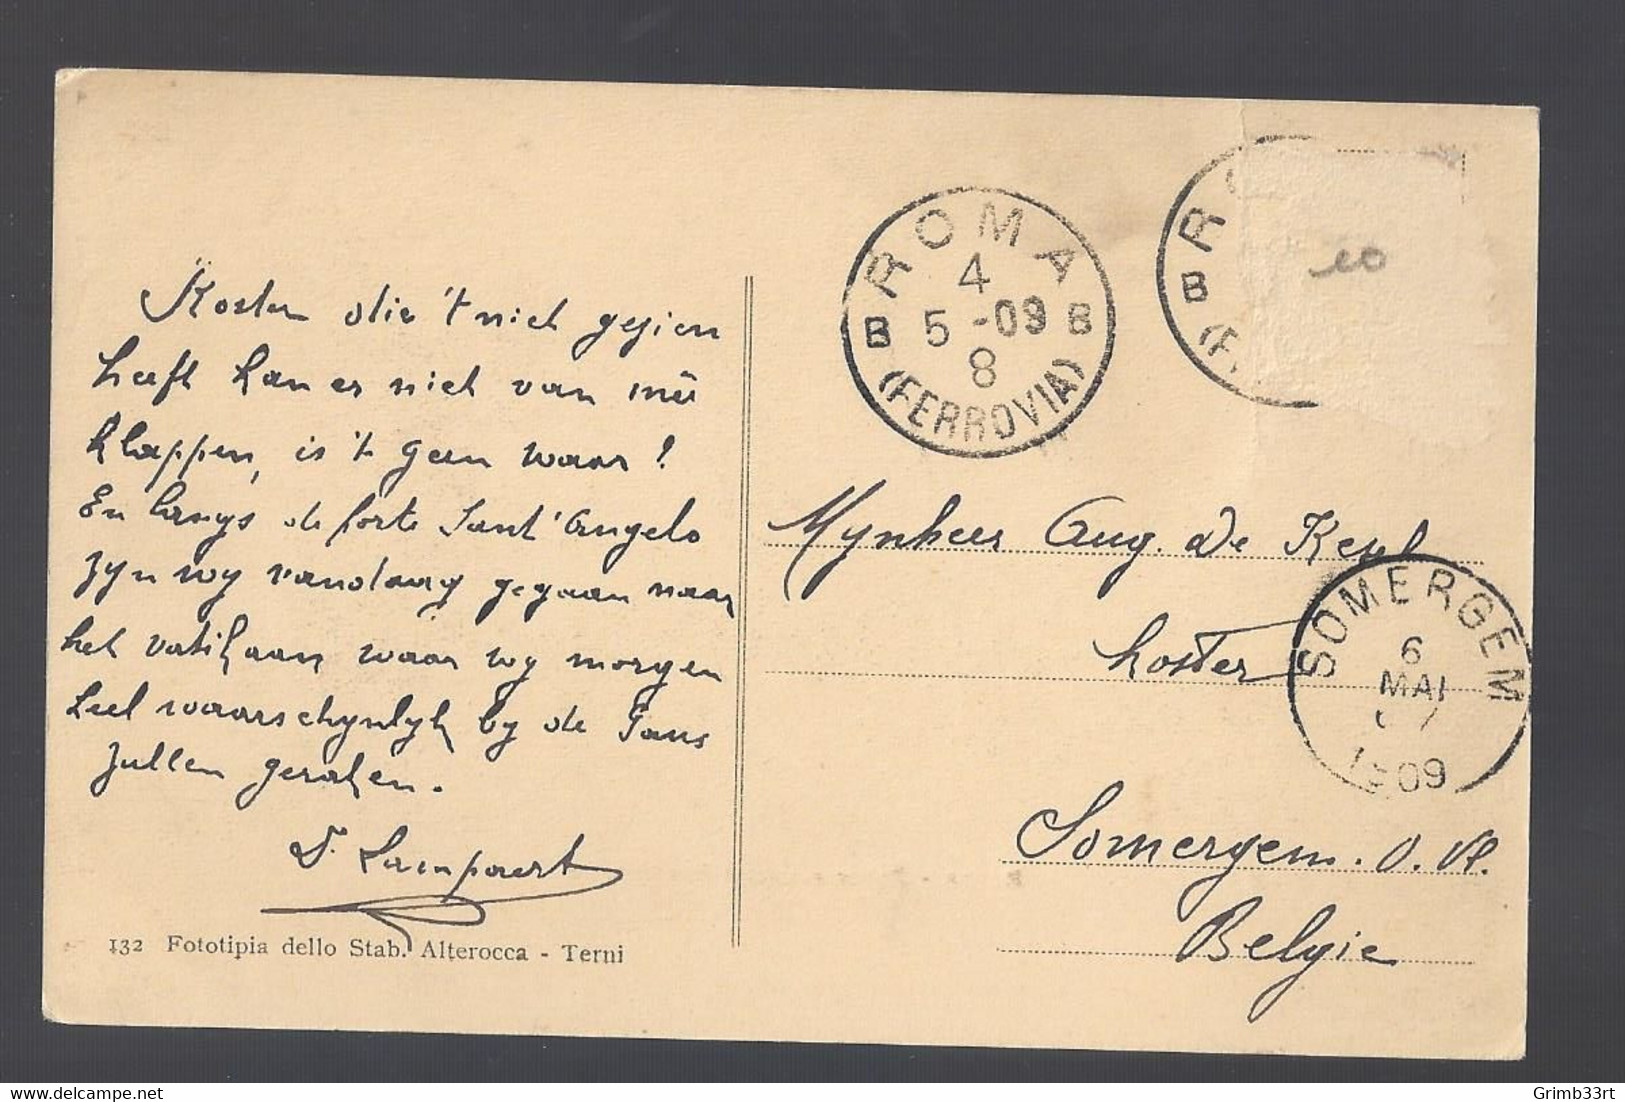 Koster die 't niet gezien
heeft kan er niet van meê
klappen, is 't geen waar?
En langs de forte Sant'Angelo
zyn wy vandaag gegaan naar
het vatikaan waar wy morgen
heel waarschynlyk by de Paus
zullen geraken.
Lampaert
132 Fototipia dello Stab. Alterocca - Terni
ROMA
4
5 - 09
8
B B
(FERROVIA)
R
B
(F
10
Mynheer Aug. De Keyl
koster
SOMERGEM
6
MAI
1909
Somergem. O. Vl.
Belgie
delcampe.net
Grimb33rt